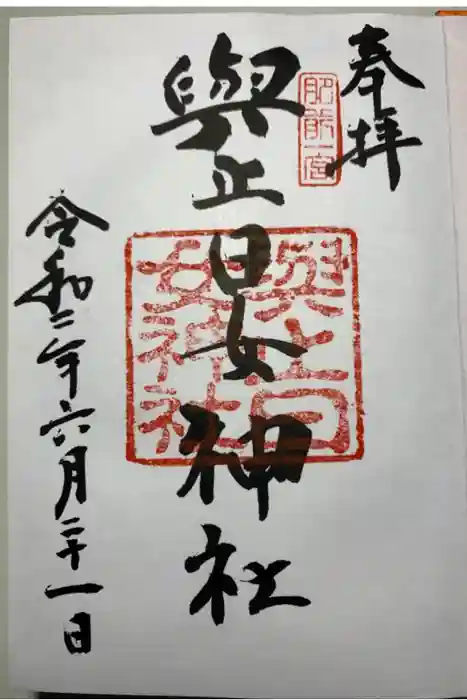 奉拝
肥前一宮
與止日女神社
與止日
女神社
令和二年六月二十一日